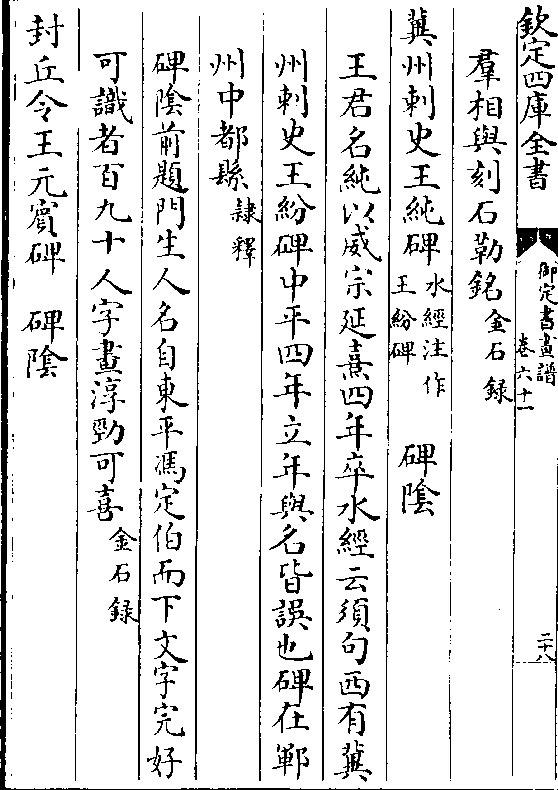 欽定四庫全書
御定書畫譜
卷六十一
二十八
羣相與刻石勒銘金石録
冀州刺史王純碑水經注作王紛碑 碑陰
王君名純以威宗延熹四年卒水經云須句西有冀
州刺史王紛碑中平四年立年與名皆誤也碑在鄆
州中都縣隸釋
碑陰前題門生人名自東平馮定伯而下文字完好
可識者百九十人字畫淳勁可喜金石録
封丘令王元賓碑 碑陰